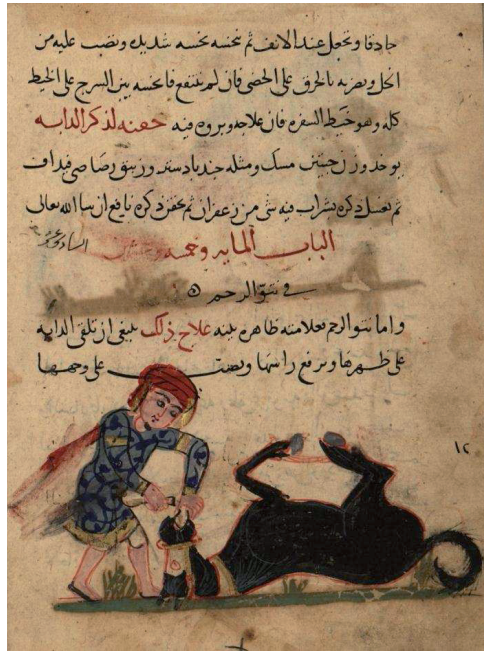 حادقا وتجعل عند الانف ثم تخسه تخسه شديده وتصب عليه من
الخل ويضربه بالخرق على الخصى فان لم ينتفع فانخسه بين السرج على الخيط
كله وهو خيط السفره فان علاجه وبروه فيه حقنه لذكر الدابه
يوخذ وزن حبتين مسك ومثله جندبادستر وزيبق رصاصى فيداف
ثم تغسل ذكره بشراب فيه شى من زعفران ثم تحقن ذكره نافع ان شا الله تعالى
الباب المايه وخمسه
فى نتو الرحم
واما نتو الرحم فعلامته ظاهره بينه علاج ذلك ينبغى ان تلقى الدابه
على ظهرها وترفع راسها وتصب على وجهها
١٢